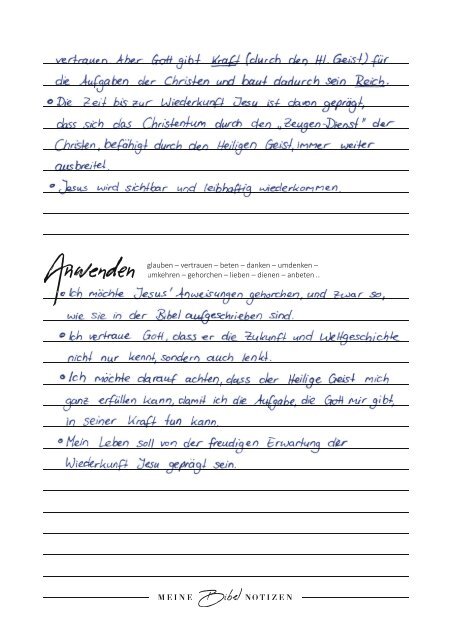 vertrauen. Aber Gott gibt Kraft (durch den Hl. Geist) für
die Aufgaben der Christen und baut dadurch sein Reich.
• Die Zeit bis zur Wiederkunft Jesu ist davon geprägt,
dass sich das Christentum durch den „Zeugen-Dienst" der
Christen, befähigt durch den Heiligen Geist, immer weiter
ausbreitet.
• Jesus wird sichtbar und leibhaftig wiederkommen.
Anwenden
glauben – vertrauen – beten – danken – umdenken –
umkehren – gehorchen – lieben – dienen – anbeten ..
• Ich möchte Jesus' Anweisungen gehorchen, und zwar so,
wie sie in der Bibel aufgeschrieben sind.
• Ich vertraue Gott, dass er die Zukunft und Weltgeschichte
nicht nur kennt, sondern auch lenkt.
• Ich möchte darauf achten, dass der Heilige Geist mich
ganz erfüllen kann, damit ich die Aufgabe, die Gott mir gibt,
in seiner Kraft tun kann.
• Mein Leben soll von der freudigen Erwartung der
Wiederkunft Jesu geprägt sein.
MEINE Bibel NOTIZEN